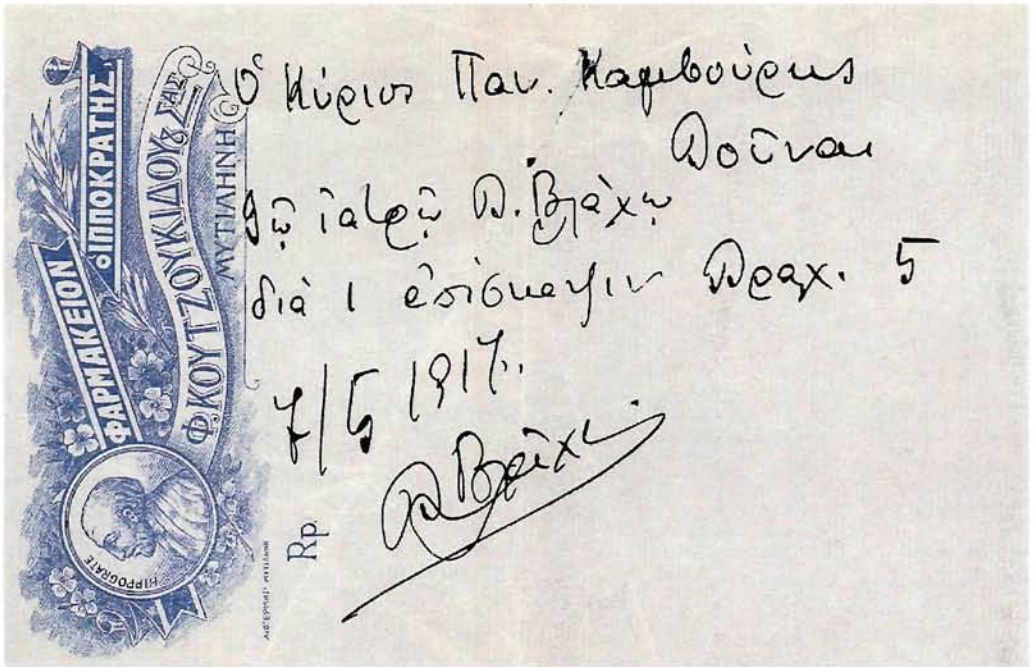 ΦΑΡΜΑΚΕΙΟΝ
"Ο ΙΠΠΟΚΡΑΤΗΣ"
Φ. ΚΟΥΤΖΟΥΚΙΔΟΥ & ΣΙΑΣ
ΜΥΤΙΛΗΝΗ
HIPPOCRATE
Rp
Ὁ Κύριος Παν. Καμβούρης
Δοῦναι
τῷ ἰατρῷ Δ. Βλάχῳ
διὰ 1 ἐπίσκεψιν Δραχ. 5
7/5 1917.